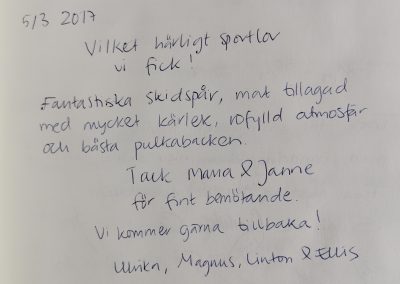 5/3 2017
Vilket härligt sportlov
vi fick!
Fantastiska skidspår, mat tillagad
med mycket kärlek, rofylld atmosfär
och bästa pulkabacken.
Tack Mana & Janne
för fint bemötande.
Vi kommer gärna tillbaka!
Ulrika, Magnus, Linton & Ellis